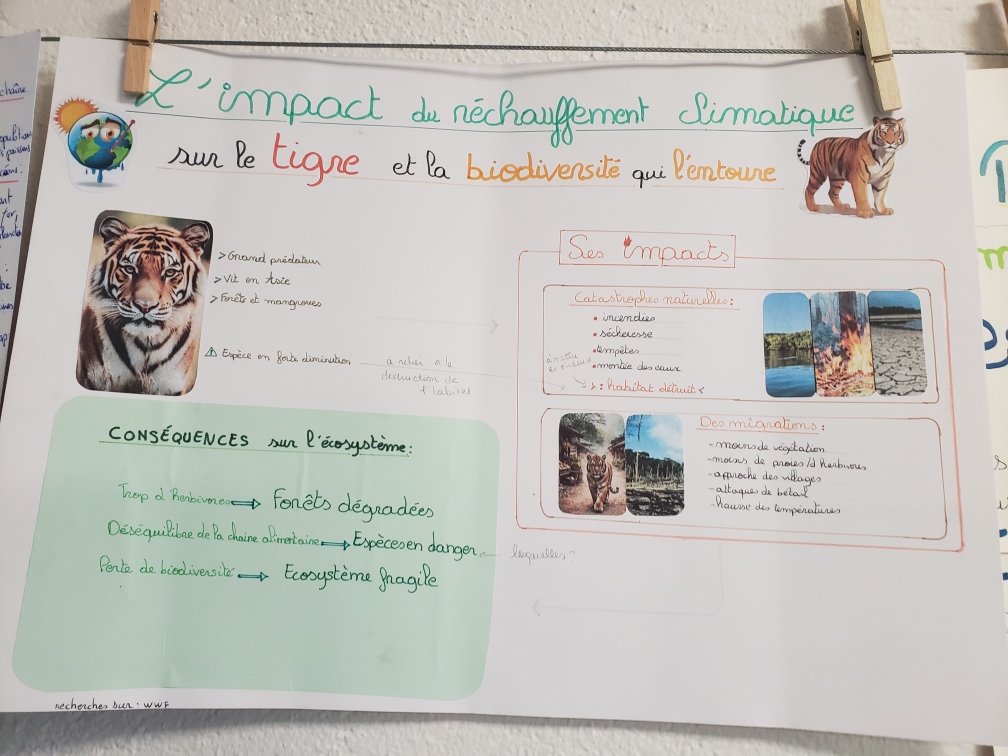 L'impact du réchauffement climatique
sur le tigre et la biodiversité qui l'entoure
> Grand prédateur
> Vit en Asie
> Forêts et mangroves
⚠ Espèce en forte diminution
à relier à la
destruction de
l'habitat
Ses impacts
Catastrophes naturelles :
• incendies
• sécheresse
• tempêtes
• montée des eaux
> : habitat détruit <
Des migrations :
- moins de végétation
- moins de proies/d'herbivores
- approche des villages
- attaques de bétail
- hausse des températures
CONSÉQUENCES sur l'écosystème :
Trop d'herbivores ⇒ Forêts dégradées
Déséquilibre de la chaine alimentaire ⇒ Espèces en danger
lesquelles ?
Perte de biodiversité ⇒ Ecosystème fragile
recherches sur : WWF